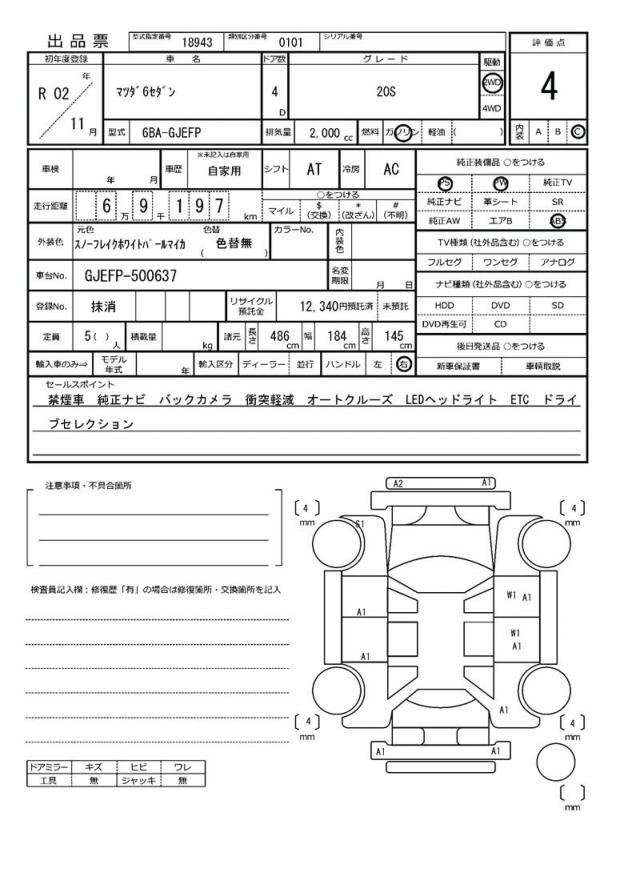 出品票 型式指定番号 18943 類別区分番号 0101 シリアル番号
初年度登録 車名 ドア数 グレード 駆動 評価点
R 02 年 11 月 マツダ6セダン 4 D 20S 2WD 4WD 4
型式 6BA-GJEFP 排気量 2,000 cc 燃料 ガソリン 軽油 ( ) 内装 A B C
車検 年 月 車歴 ※未記入は自家用 自家用 シフト AT 冷房 AC
走行距離 6 万 9 千 1 9 7 km ○をつける マイル $(交換) *(改ざん) #(不明)
外装色 元色 スノーフレイクホワイトパールマイカ 色替 ( 色替無 ) カラーNo. 内装色
車台No. GJEFP-500637 名変期限 月 日
登録No. 抹消 リサイクル預託金 12,340円預託済 未預託
定員 5( ) 人 積載量 kg 諸元 長さ 486 cm 幅 184 cm 高さ 145 cm
輸入車のみ⇒ モデル年式 年 輸入区分 ディーラー 並行 ハンドル 左 右
純正装備品 ○をつける
PS PW 純正TV
純正ナビ 革シート SR
純正AW エアB ABS
TV種類(社外品含む)○をつける
フルセグ ワンセグ アナログ
ナビ種類(社外品含む)○をつける
HDD DVD SD
DVD再生可 CD
後日発送品 ○をつける
新車保証書 車輌取説
セールスポイント
禁煙車 純正ナビ バックカメラ 衝突軽減 オートクルーズ LEDヘッドライト ETC ドライ
ブセレクション
注意事項・不具合箇所
検査員記入欄:修復歴「有」の場合は修復箇所・交換箇所を記入
A2 A1
[ 4 ] mm [ 4 ] mm
G1
W1 A1
A1
W1
A1
A1
A1
[ 4 ] mm [ 4 ] mm
A1 A1
[ ] mm
ドアミラー キズ ヒビ ワレ
工具 無 ジャッキ 無